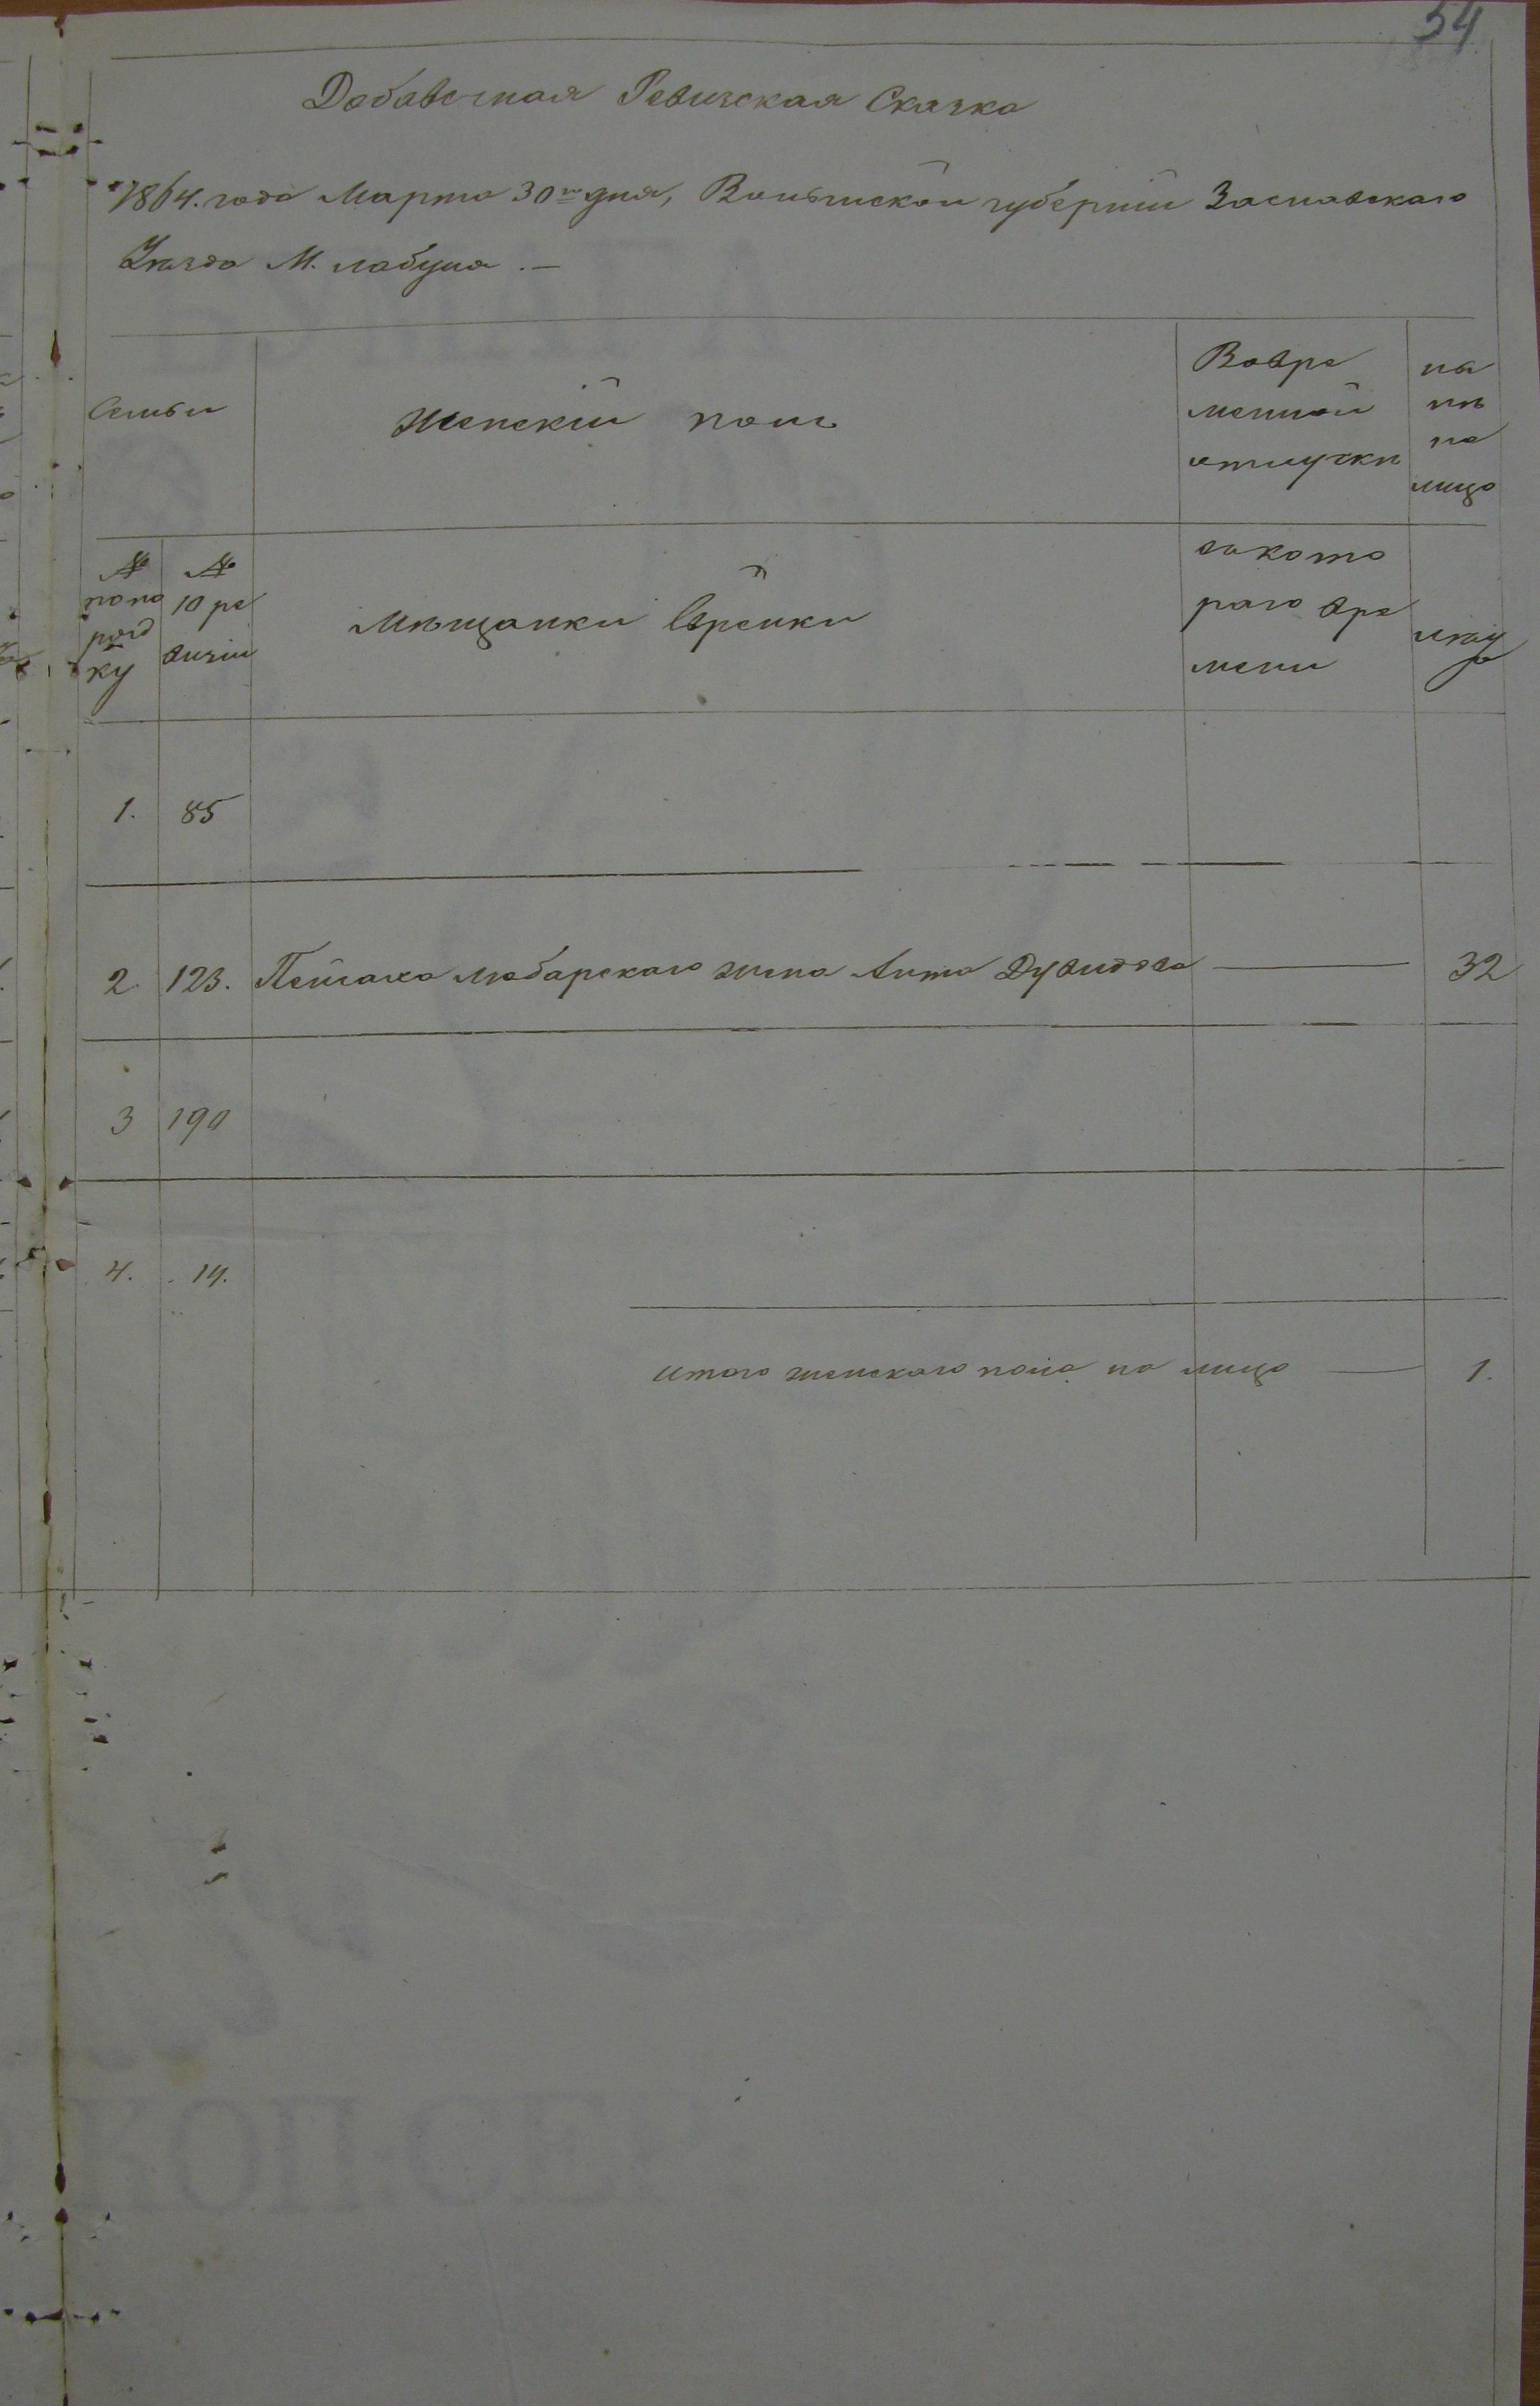 54
Добавочная Ревизская Сказка
1864. года Марта 30го дня, Волынской губерніи Заславскаго
Уезда М. лабуня . —
Семьи
женскій полъ
Вовре
менной
отлучкѣ
ны
нѣ
на
лицо
№
попо
ряд
ку
№
10 ре
визіи
Мѣщанки Еврейки
сжкото
раго вре
мени
лѣта
1. 85
2. 123. Пейсаха любарскаго жена Анта Дувидова — 32
3 190
4. 14.
итого женскаго пола на лицо — 1.